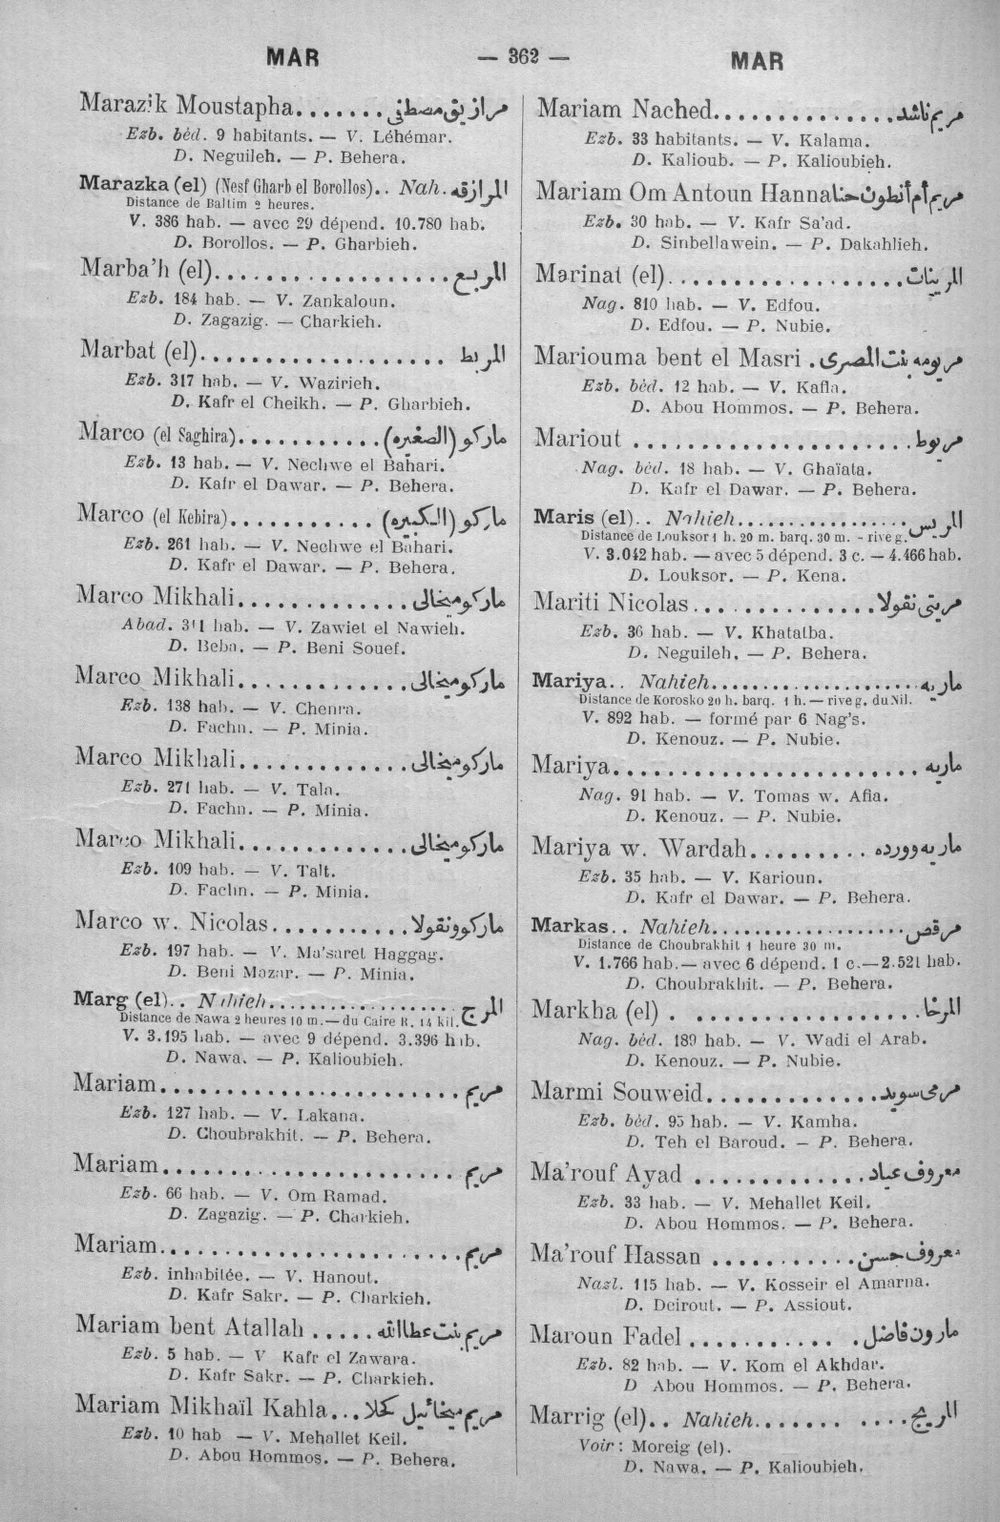 MAR
— 362 —
MAR
Marazik Moustapha....... مرازيق مصطفى
Ezb. béd. 9 habitants. — V. Léhémar.
D. Neguileh. — P. Behera.
Marazka (el) (Nesf Gharb el Borollos).. Nah. المرازقه
Distance de Baltim 2 heures.
V. 386 hab. — avec 29 dépend. 10.780 hab.
D. Borollos. — P. Gharbieh.
Marba'h (el).................. المربع
Ezb. 184 hab. — V. Zankaloun.
D. Zagazig. — Charkieh.
Marbat (el)................... المربط
Ezb. 317 hab. — V. Wazirieh.
D. Kafr el Cheikh. — P. Gharbieh.
Marco (el Saghira)........... ماركو (الصغيره)
Ezb. 13 hab. — V. Nechwe el Bahari.
D. Kafr el Dawar. — P. Behera.
Marco (el Kebira)........... ماركو (الكبيره)
Ezb. 261 hab. — V. Nechwe el Bahari.
D. Kafr el Dawar. — P. Behera.
Marco Mikhali............. ماركو ميخالى
Abad. 311 hab. — V. Zawiet el Nawieh.
D. Beba. — P. Beni Souef.
Marco Mikhali............. ماركو ميخالى
Ezb. 138 hab. — V. Chenra.
D. Fachn. — P. Minia.
Marco Mikhali............. ماركو ميخالى
Ezb. 271 hab. — V. Tala.
D. Fachn. — P. Minia.
Marco Mikhali............. ماركو ميخالى
Ezb. 109 hab. — V. Talt.
D. Fachn. — P. Minia.
Marco w. Nicolas........... ماركو ونقولا
Ezb. 197 hab. — V. Ma'saret Haggag.
D. Beni Mazar. — P. Minia.
Marg (el).. Nahieh................. المرج
Distance de Nawa 2 heures 10 m. — du Caire R. 14 kil.
V. 3.195 hab. — avec 9 dépend. 3.396 hab.
D. Nawa. — P. Kalioubieh.
Mariam........................ مريم
Ezb. 127 hab. — V. Lakana.
D. Choubrakhit. — P. Behera.
Mariam........................ مريم
Ezb. 66 hab. — V. Om Ramad.
D. Zagazig. — P. Charkieh.
Mariam........................ مريم
Ezb. inhabitée. — V. Hanout.
D. Kafr Sakr. — P. Charkieh.
Mariam bent Atallah ..... مريم بنت عطاالله
Ezb. 5 hab. — V Kafr el Zawara.
D. Kafr Sakr. — P. Charkieh.
Mariam Mikhaïl Kahla... مريم ميخائيل كحلا
Ezb. 10 hab — V. Mehallet Keil.
D. Abou Hommos. — P. Behera.
Mariam Nached............... مريم ناشد
Ezb. 33 habitants. — V. Kalama.
D. Kalioub. — P. Kalioubieh.
Mariam Om Antoun Hanna مريم أم أنطون حنا
Ezb. 30 hab. — V. Kafr Sa'ad.
D. Sinbellawein. — P. Dakahlieh.
Marinat (el)................... المرينات
Nag. 810 hab. — V. Edfou.
D. Edfou. — P. Nubie.
Mariouma bent el Masri . مريومه بنت المصرى
Ezb. béd. 12 hab. — V. Kafla.
D. Abou Hommos. — P. Behera.
Mariout ....................... مريوط
Nag. béd. 18 hab. — V. Ghaïata.
D. Kafr el Dawar. — P. Behera.
Maris (el).. Nahieh................. المريس
Distance de Louksor 1 h. 20 m. barq. 30 m. - rive g.
V. 3.042 hab. — avec 5 dépend. 3 c. — 4.466 hab.
D. Louksor. — P. Kena.
Mariti Nicolas................ مريتى نقولا
Ezb. 36 hab. — V. Khatatba.
D. Neguileh. — P. Behera.
Mariya.. Nahieh..................... ماريه
Distance de Korosko 20 h. barq. 1 h. — rive g. du Nil.
V. 892 hab. — formé par 6 Nag's.
D. Kenouz. — P. Nubie.
Mariya........................ ماريه
Nag. 91 hab. — V. Tomas w. Afia.
D. Kenouz. — P. Nubie.
Mariya w. Wardah......... ماريه وورده
Ezb. 35 hab. — V. Karioun.
D. Kafr el Dawar. — P. Behera.
Markas.. Nahieh.................... مرقص
Distance de Choubrakhit 1 heure 30 m.
V. 1.766 hab. — avec 6 dépend. 1 c. — 2.521 hab.
D. Choubrakhit. — P. Behera.
Markha (el) . ................. المرخا
Nag. béd. 189 hab. — V. Wadi el Arab.
D. Kenouz. — P. Nubie.
Marmi Souweid............. مرمى سويد
Ezb. béd. 95 hab. — V. Kamha.
D. Teh el Baroud. — P. Behera.
Ma'rouf Ayad ............. معروف عياد
Ezb. 33 hab. — V. Mehallet Keil.
D. Abou Hommos. — P. Behera.
Ma'rouf Hassan ........... معروف حسن
Nazl. 115 hab. — V. Kosseir el Amarna.
D. Deirout. — P. Assiout.
Maroun Fadel ............ مارون فاضل
Ezb. 82 hab. — V. Kom el Akhdar.
D Abou Hommos. — P. Behera.
Marrig (el).. Nahieh....... .... المريج
Voir : Moreig (el).
D. Nawa. — P. Kalioubieh.